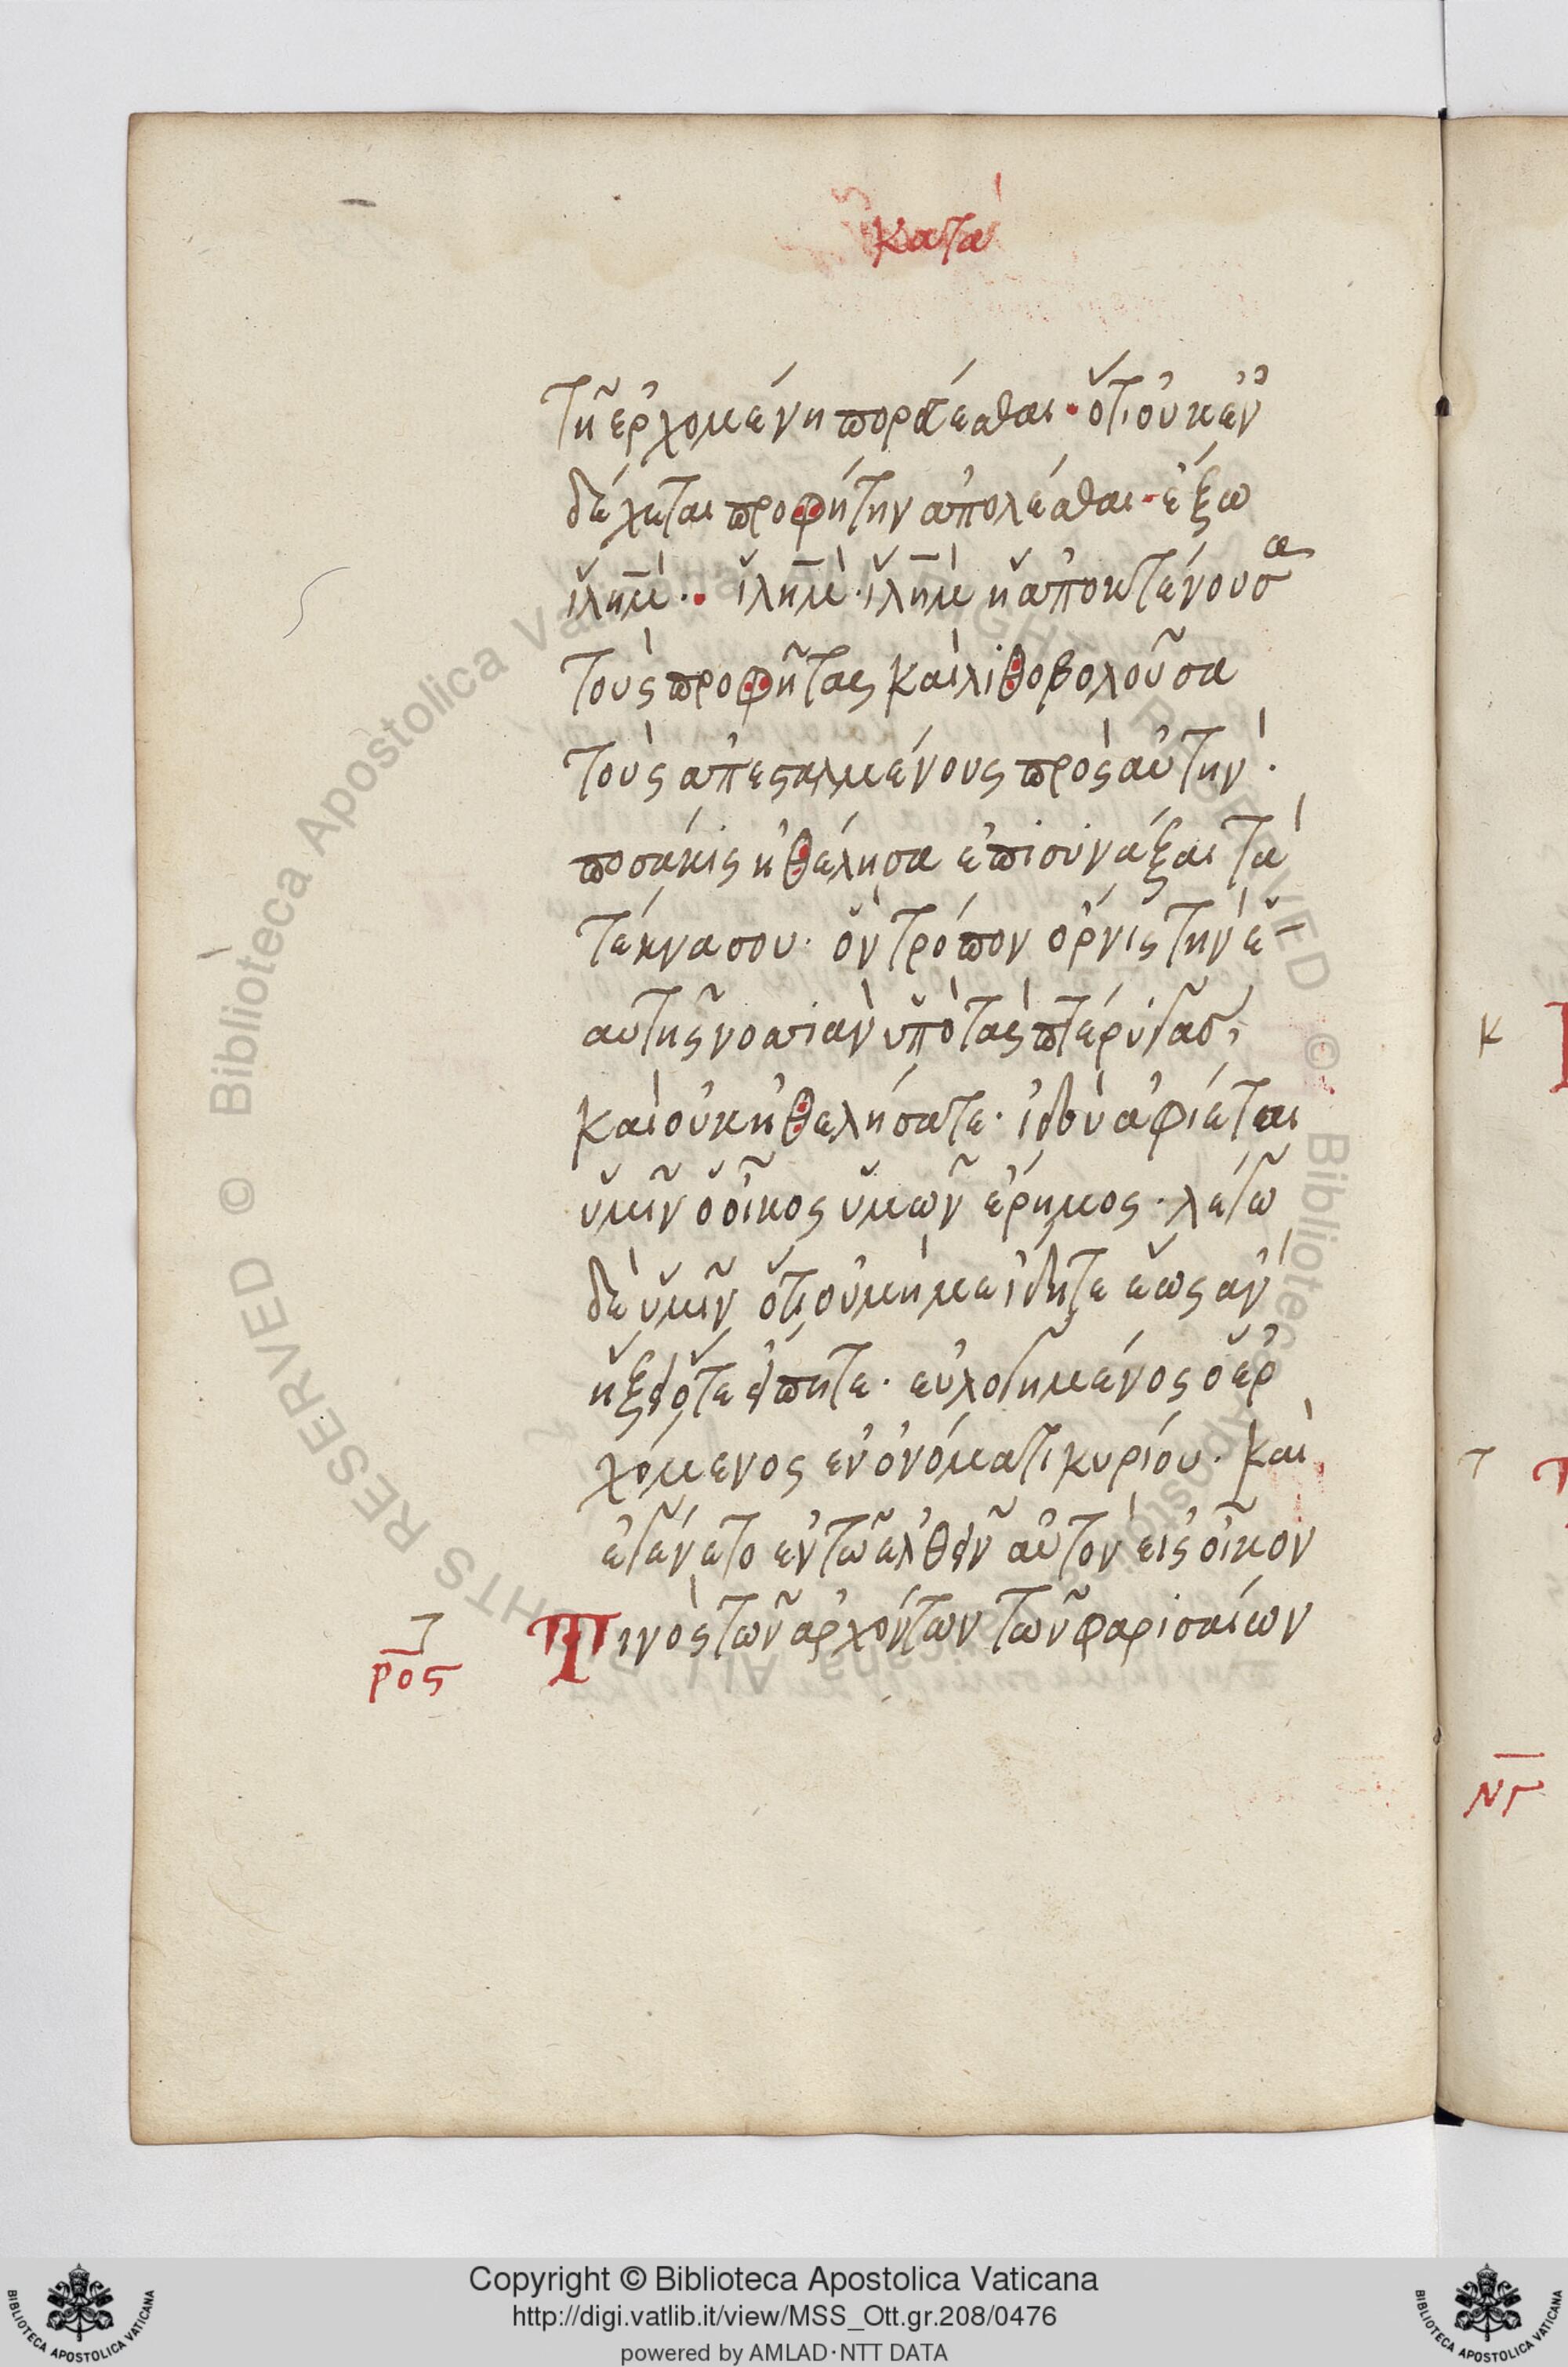 κατὰ
τῆ ἐρχομένη πορεύεσθαι· ὅτι οὐκ ἐν
δέχεται προφήτην ἀπολέσθαι· ἔξω
ἱλημ̅·· ἱλημ̅· ἱλημ̅ ἡ ἀποκτένουσα
τοὺς προφῆτας καὶ λιθοβολοῦσα
τοὺς ἀπεσταλμένους πρὸς αὐτὴν·
ποσάκις ἠθέλησα ἐπισυνάξαι τὰ
τέκνα σου· ὃν τρόπον ὄρνις τὴν ἑ-
αυτῆς νοσιὰν ὑπὸ τὰς πτέρυγας,
καὶ οὐκ ἠθελήσατε· ἰδοὺ ἀφίεται
ὑμῖν ὁ οἶκος ὑμῶν ἔρημος· λέγω
δὲ ὑμῖν ὅτι οὐ μή με ἴδητε ἕως ἂν
ἥξει ὅτε εἴπητε· εὐλογημένος ὁ ἐρ
χόμενος ἐν ὀνόματι κυρίου· καὶ
ἐγένετο ἐν τῶ ἐλθεῖν αὐτὸν εἰς οἶκον
τινὸς τῶν ἀρχόντων τῶν φαρισαίων
ρος
κ
τ
νγ
© Biblioteca Apostolica Vaticana ALL RIGHTS RESERVED
Copyright © Biblioteca Apostolica Vaticana
http://digi.vatlib.it/view/MSS_Ott.gr.208/0476
powered by AMLAD·NTT DATA
BIBLIOTECA APOSTOLICA VATICANA
BIBLIOTECA APOSTOLICA VATICANA